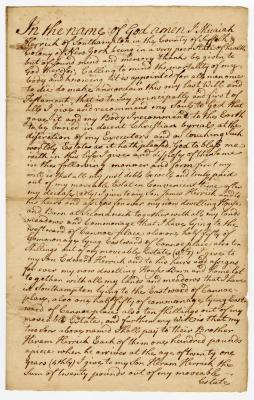 In the name of God amen I Micaiah
Herrick of Southampton in the County of Suffolk &
Colony of New York being in a very poor state of health
but of sound mind and memory thanks be given to
God therefor, Calling to mind the mortality of my
body and knowing it is appointed for all men once
to die do make and ordain this my last Will and
Testament, that is to say principally and first of
all I give and recommend my Soul to God that
gave it and my Body I recommend to the Earth
to be buried in decent Christian burial at the
discretion of my Executors and as touching such
worldly Estate as it hath pleased God to bless me
with in this life I give and dispose of the same
in the following manner and form first my
will is that all my just debts be well and truly paid
out of my moveable Estate in Convenient time after
my decease (2dly) I give to my Son James Herrick and to
his heirs and assigns for ever my now dwelling House
and Barn all and with all my lands
meadows and Commonage that I have lying to the
Westward of Cannoe place, also one half fifty of
Commonage lying Eastward of Cannoe place, also ten
Shillings out of my moveable Estate (3dly) I give to
my Son Edward Herrick and to his heirs and assigns
for ever my now dwelling House Barn and home lot
together with all my lands and meadows that I have
in Southampton lying to the Eastward of Cannoe
place, also one half fifty of commonage lying East
ward of Cannoe place also ten Shillings out of my
moveable Estate, and further my will is that my
two Sons above named Shall pay to their Brother
Hiram Herrick Each of them one hundred pounds
apiece when he arrives at the age of twenty one
years (4thly) I give to my Son Hiram Herrick the
Sum of twenty pounds out of my moveable
Estate